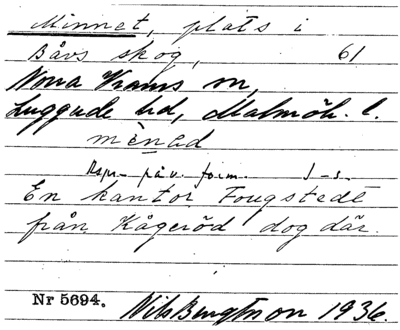 Minnet, plats i
Båvs skog, 61
Norra Vrams sn,
Luggude hd, Malmöh. l.
mènad
Uspr. på v. form. J-s.
En kantor Fougstedt
från Kågeröd dog där.
Nr 5694. Nils Bengtson 1936.